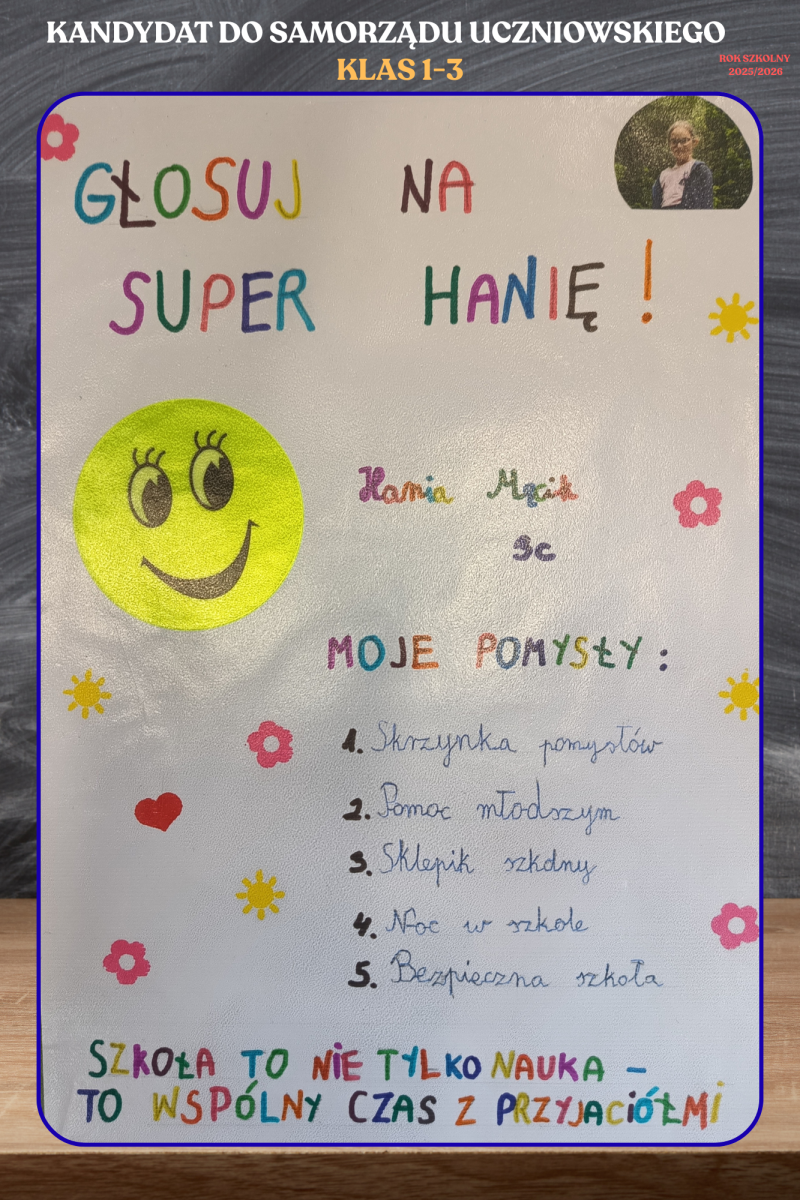 KANDYDAT DO SAMORZĄDU UCZNIOWSKIEGO
KLAS 1-3
ROK SZKOLNY
2025/2026
GŁOSUJ NA
SUPER HANIĘ !
Hania Męcik
3c
MOJE POMYSŁY :
1. Skrzynka pomysłów
2. Pomoc młodszym
3. Sklepik szkolny
4. Noc w szkole
5. Bezpieczna szkoła
SZKOŁA TO NIE TYLKO NAUKA –
TO WSPÓLNY CZAS Z PRZYJACIÓŁMI